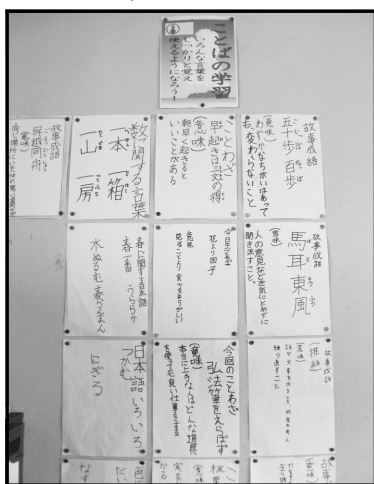 ことばの学習
いろんな言葉を
しっかりと覚え
使えるようになろう!
故事成語
五十歩百歩
(意味)
わずかなちがいはあって
も、変わらないこと
ことわざ
早起きは三文の得
(意味)
朝早く起きると
いいことがある
数に関する言葉
一本 一箱
一山 一房
故事成語
呉越同舟
(意味)
故事成語
馬耳東風
(意味)
人の意見など気にとめずに
聞き流すこと。
今回のことわざ
花より団子
意味
見ることより食べるほうがいい
春に関する日本語
春一番 うららか
水ぬるむ 春らんまん
故事成語
(推敲)
(意味)
詩や文章を作るとき、何度も考え
練り直すこと
今回のことわざ
弘法筆をえらばず
(意味)
本当に上手な人はどんな道具
を使っても良い仕事をする
日本語いろいろ
つかむ
にぎる
故事
(意味